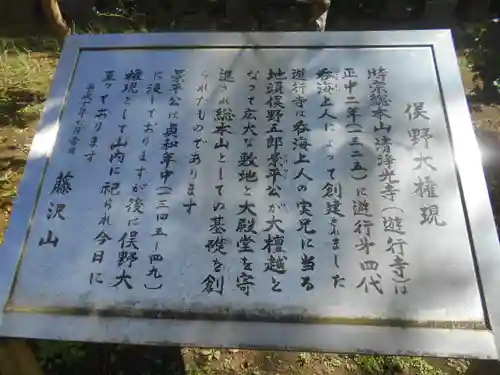 俣野大権現
時宗総本山清浄光寺(遊行寺)は
正中二年(一三二五)に遊行第四代
呑海上人によって創建されました
遊行寺は呑海上人の実兄に当る
地頭俣野五郎景平公が大檀越と
なって広大な敷地と大殿堂を寄
進され総本山としての基礎を創
られたものであります
景平公は貞和年中(一三四五ー四九)
に没しておりますが後に俣野大
権現として山内に祀られ今日に
至っております
藤沢山